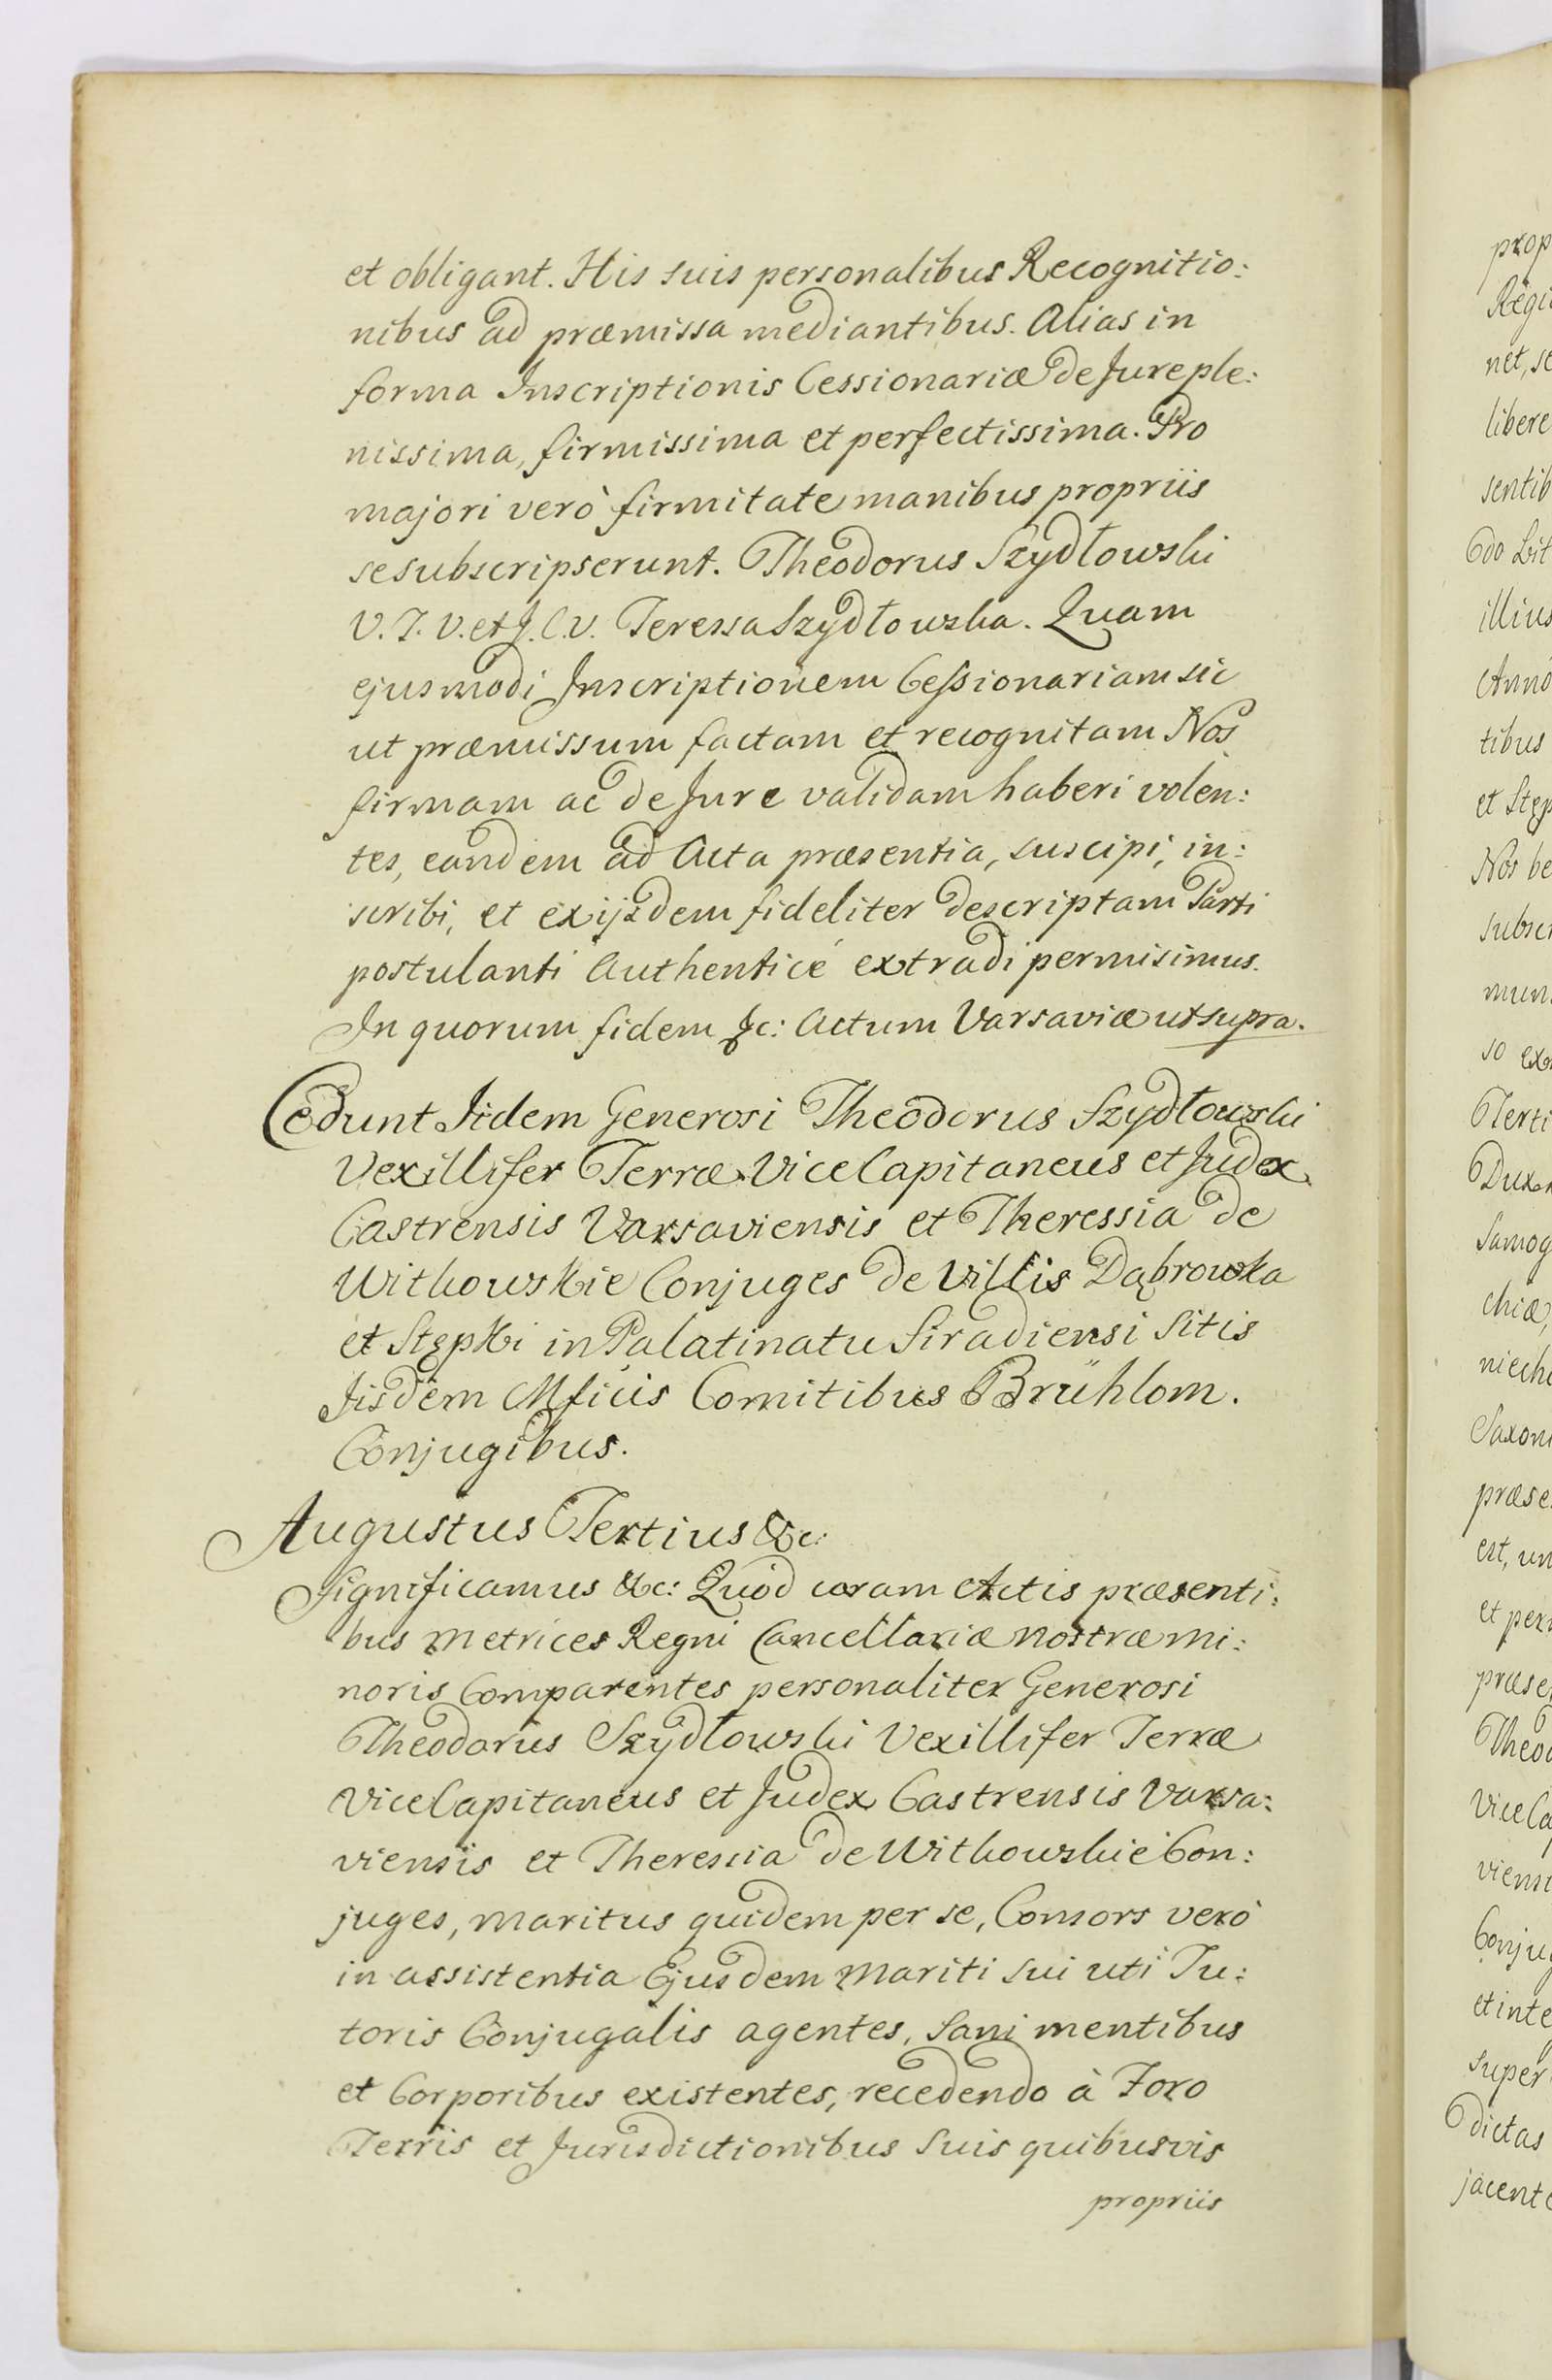 et obligant. His suis personalibus Recognitio:
nibus ad præmissa mediantibus. Alias in
forma Inscriptionis Cessionariæ de Jure ple:
nissima, firmissima et perfectissima. Pro
majori verò firmitate manibus propriis
se subscripserunt. Theodorus Szydłowski
V. T. V. et J. C. V. Teressa Szydłowska. Quam
ejusmodi Inscriptionem Cessionariam sic
ut præmissum factam et recognitam Nos
firmam ac de Jure validam haberi volen:
tes, eandem ad Acta præsentia, suscipi, in:
scribi, et exijsdem fideliter descriptam Parti
postulanti Authenticé extradi permisimus.
In quorum fidem &c: Actum Varsaviæ ut supra.
Cedunt Iidem Generosi Theodorus Szydłowski
Vexillifer Terræ ViceCapitaneus et Judex
Castrensis Varsaviensis et Theressia de
Witkowskie Conjuges de Villis Dąbrowka
et Stępki in Palatinatu Siradiensi Sitis
Iisdem Mficis Comitibus Brühlom.
Conjugibus.
Augustus Tertius &c:
Significamus &c: Quod coram Actis præsenti:
bus Metrices Regni Cancellariæ Nostræ Mi:
noris Comparentes personaliter Generosi
Theodorus Szydłowski Vexillifer Terræ
ViceCapitaneus et Judex Castrensis Varsa:
viensis et Theressia de Witkowskie Con:
juges, Maritus quidem per se, Consors verò
in assistentia Ejusdem Mariti sui uti Tu:
toris Conjugalis agentes, Sani mentibus
et Corporibus existentes, recedendo à Foro
Terris et Jurisdictionibus Suis quibusvis
propriis
prop
Regi
net, se
libere
sentib
do Lit
illius
Anno
tibus
et Stęp
Nos be
subscr
mun
so ex
Terti
Dux
Samog
chiæ,
niech
Saxon
præse
est, un
et per
præse
Theod
ViceCa
viensi
Conju
et inte
super
dictas
jacent